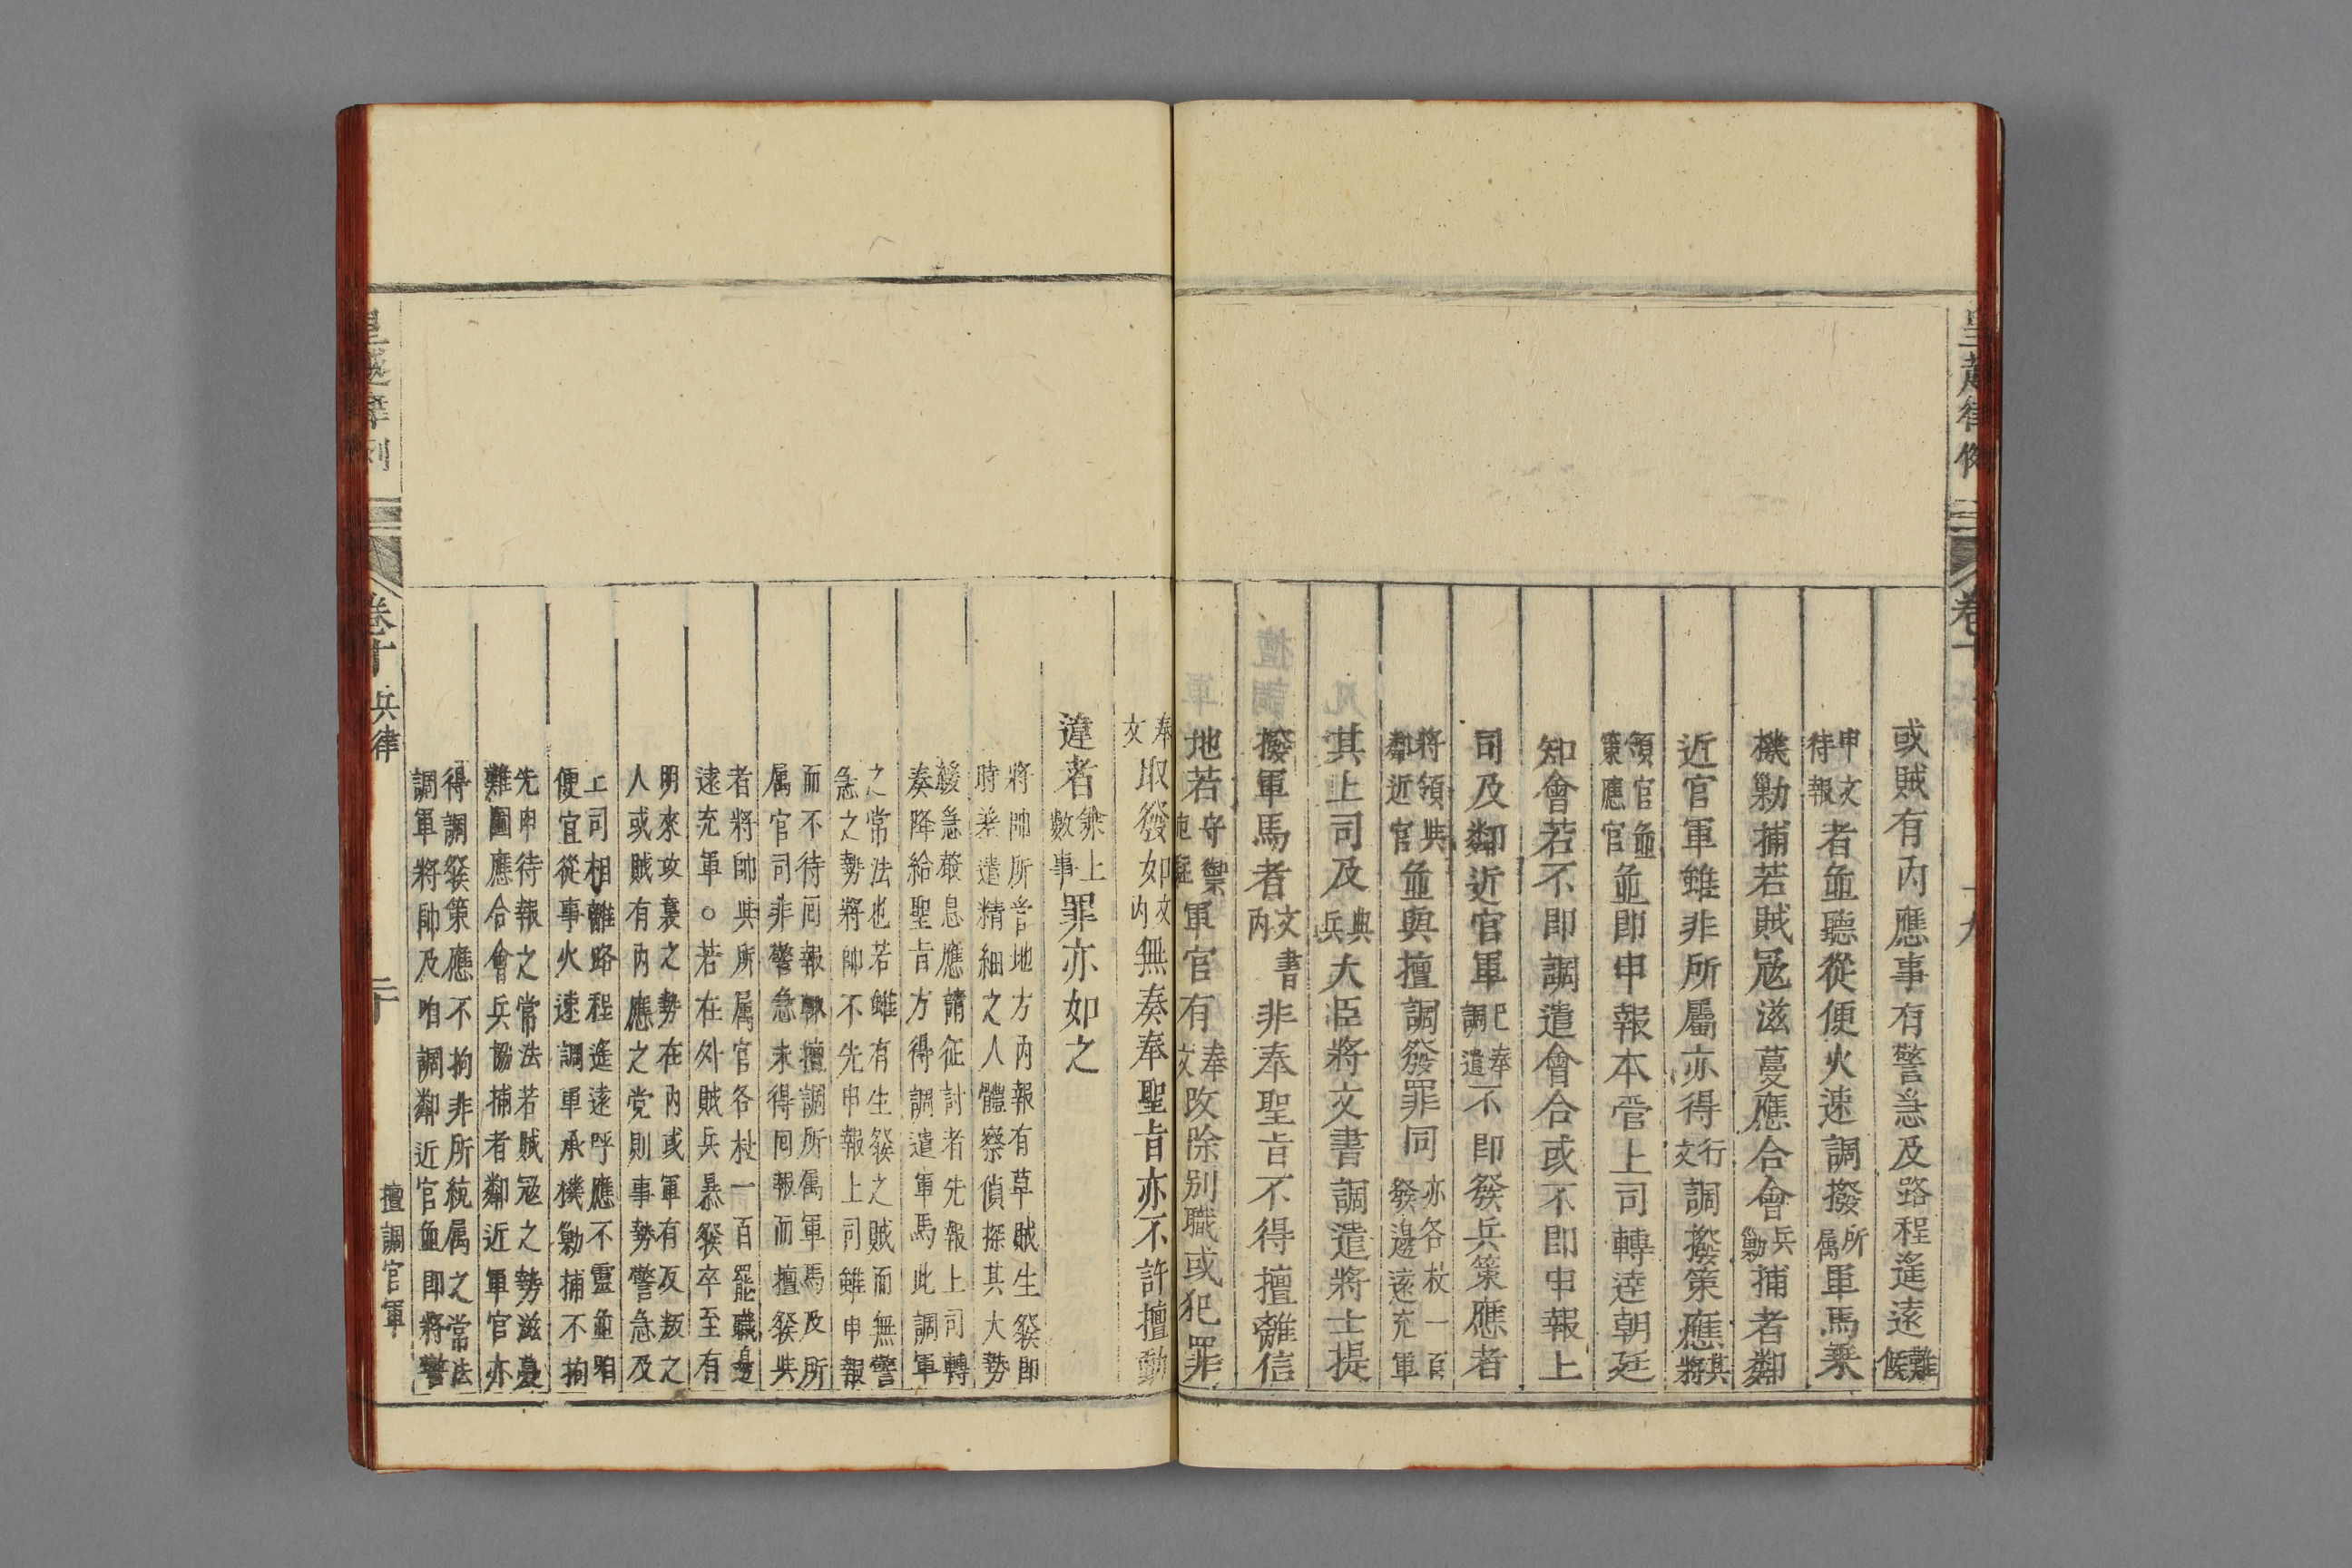 皇越律例
卷十
十九
或賊有內應事有警急及路程遙遠難候
申文待報者並聽從便火速調撥所属軍馬乘
機勦捕若賊冦滋蔓應合會兵勦捕者鄰
近官軍雖非所屬亦得行文調撥策應其將
領官並策應官並即申報本管上司轉達朝廷
知會若不即調遣會合或不即申報上
司及鄰近官軍已奉調遣不即發兵策應者
將領與鄰近官並與擅調發罪同亦各杖一百發邊遠充軍
其上司及典兵大臣將文書調遣將士提
撥軍馬者文書內非奉聖旨不得擅離信
地若守禦屯駐軍官有奉文改除別職或犯罪
奉文取發如文內無奏奉聖旨亦不許擅動
違者兼上數事罪亦如之
將帥所管地方內報有草賊生發即
時差遣精細之人體察偵探其大勢
緩急聲息應請征討者先報上司轉
奏降給聖旨方得調遣軍馬此調軍
之常法也若雖有生發之賊而無警
急之勢將帥不先申報上司雖申報
而不待囘報輙擅調所属軍馬及所
属官司非警急未得囘報而擅發與
者將帥與所属官各杖一百罷職邊
遠充軍○若在外賊兵暴發卒至有
明來攻襲之勢在內或軍有反叛之
人或賊有內應之党則事勢警急及
上司相離路程遙遠呼應不靈並照
便宜從事火速調軍承機勦捕不拘
先申待報之常法若賊冦之勢滋蔓
難圖應合會兵協捕者鄰近軍官亦
得調發策應不拘非所統属之常法
調軍將帥及所調鄰近官並即將警
皇越律例
卷十 兵律
二十
擅調官軍